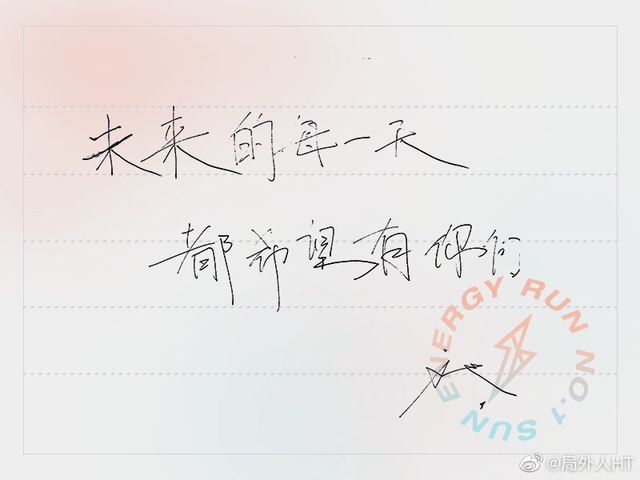 未来的每一天
都希望有你们
ENERGY RUN NO.1 SUN
@局外人HT